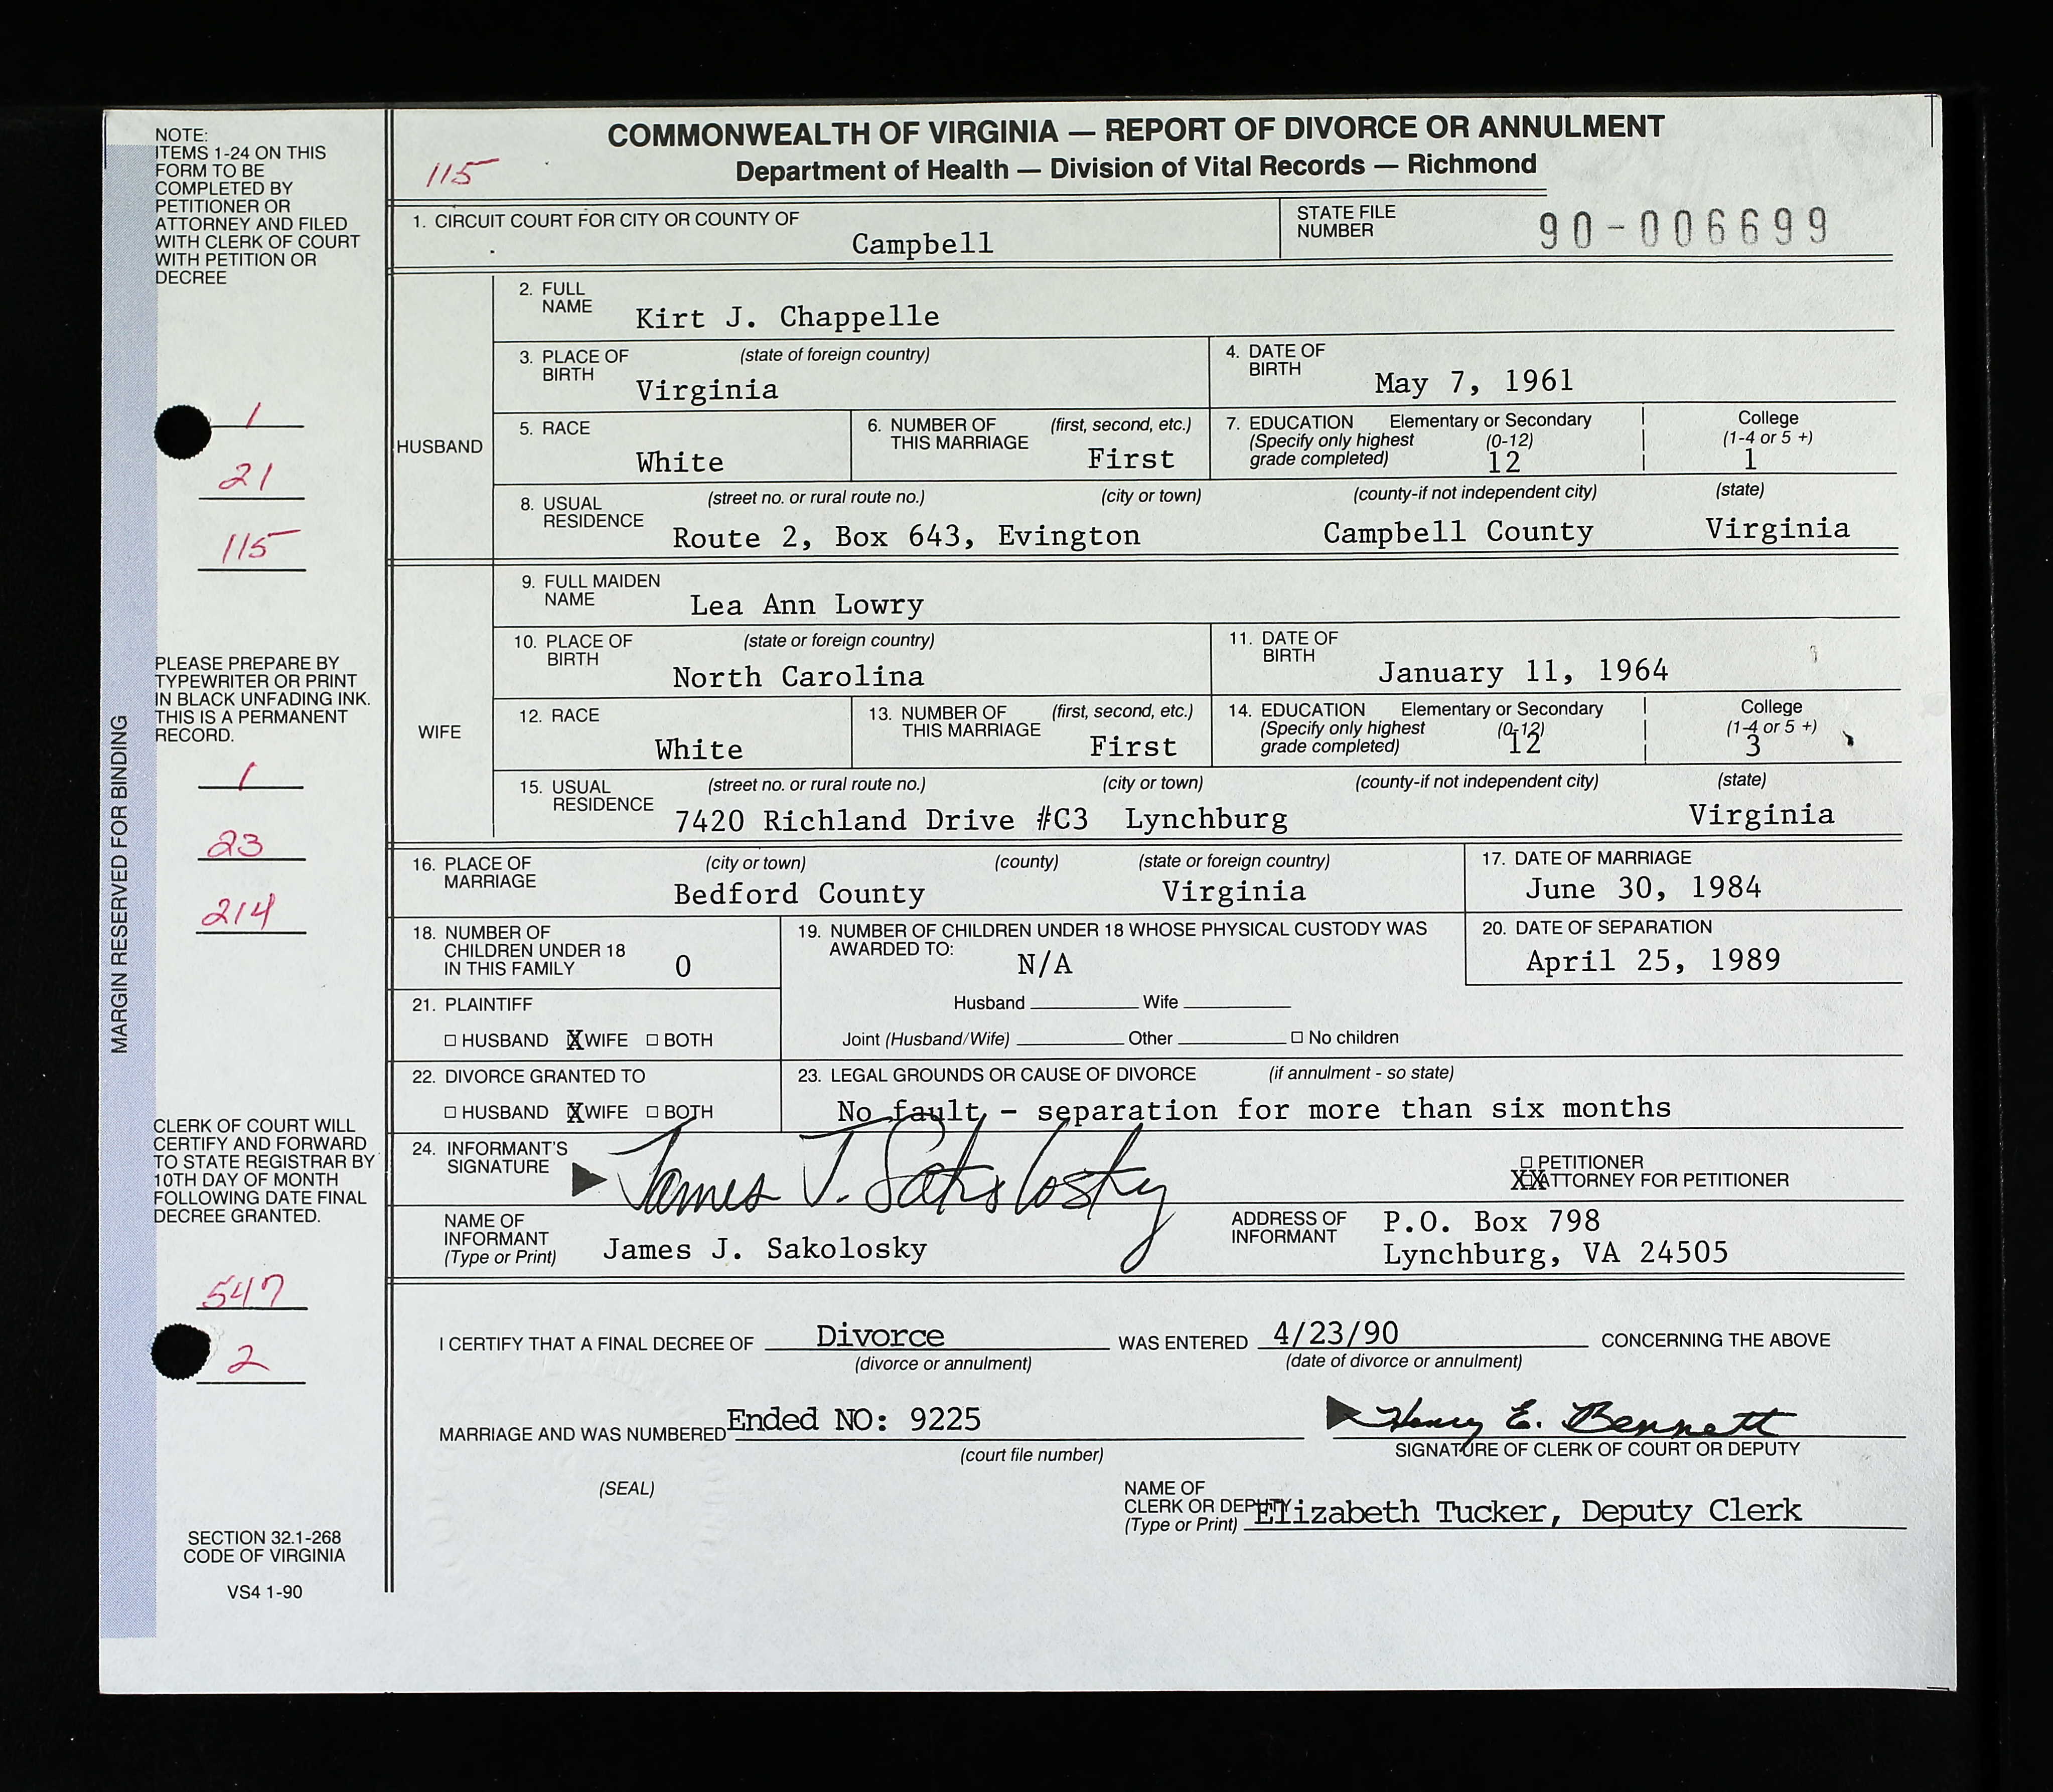 NOTE:
ITEMS 1-24 ON THIS
FORM TO BE
COMPLETED BY
PETITIONER OR
ATTORNEY AND FILED
WITH CLERK OF COURT
WITH PETITION OR
DECREE
1
21
115
PLEASE PREPARE BY
TYPEWRITER OR PRINT
IN BLACK UNFADING INK.
THIS IS A PERMANENT
RECORD.
1
23
214
CLERK OF COURT WILL
CERTIFY AND FORWARD
TO STATE REGISTRAR BY
10TH DAY OF MONTH
FOLLOWING DATE FINAL
DECREE GRANTED.
547
2
SECTION 32.1-268
CODE OF VIRGINIA
VS4 1-90
MARGIN RESERVED FOR BINDING
COMMONWEALTH OF VIRGINIA — REPORT OF DIVORCE OR ANNULMENT
115 Department of Health — Division of Vital Records — Richmond
1. CIRCUIT COURT FOR CITY OR COUNTY OF
Campbell
STATE FILE
NUMBER 90-006699
HUSBAND
2. FULL
NAME Kirt J. Chappelle
3. PLACE OF (state of foreign country)
BIRTH Virginia
4. DATE OF
BIRTH May 7, 1961
5. RACE
White
6. NUMBER OF (first, second, etc.)
THIS MARRIAGE First
7. EDUCATION Elementary or Secondary College
(Specify only highest (0-12) (1-4 or 5 +)
grade completed) 12 1
8. USUAL (street no. or rural route no.) (city or town) (county-if not independent city) (state)
RESIDENCE Route 2, Box 643, Evington Campbell County Virginia
WIFE
9. FULL MAIDEN
NAME Lea Ann Lowry
10. PLACE OF (state or foreign country)
BIRTH North Carolina
11. DATE OF
BIRTH January 11, 1964
12. RACE
White
13. NUMBER OF (first, second, etc.)
THIS MARRIAGE First
14. EDUCATION Elementary or Secondary College
(Specify only highest (0-12) (1-4 or 5 +)
grade completed) 12 3
15. USUAL (street no. or rural route no.) (city or town) (county-if not independent city) (state)
RESIDENCE 7420 Richland Drive #C3 Lynchburg Virginia
16. PLACE OF (city or town) (county) (state or foreign country)
MARRIAGE Bedford County Virginia
17. DATE OF MARRIAGE
June 30, 1984
18. NUMBER OF
CHILDREN UNDER 18
IN THIS FAMILY 0
19. NUMBER OF CHILDREN UNDER 18 WHOSE PHYSICAL CUSTODY WAS
AWARDED TO: N/A
Husband Wife
Joint (Husband/Wife) Other □ No children
20. DATE OF SEPARATION
April 25, 1989
21. PLAINTIFF
□ HUSBAND X WIFE □ BOTH
22. DIVORCE GRANTED TO
□ HUSBAND X WIFE □ BOTH
23. LEGAL GROUNDS OR CAUSE OF DIVORCE (if annulment - so state)
No fault, - separation for more than six months
24. INFORMANT'S
SIGNATURE James J. Sakolosky
□ PETITIONER
XX ATTORNEY FOR PETITIONER
NAME OF
INFORMANT
(Type or Print) James J. Sakolosky
ADDRESS OF
INFORMANT
P.O. Box 798
Lynchburg, VA 24505
I CERTIFY THAT A FINAL DECREE OF Divorce WAS ENTERED 4/23/90 CONCERNING THE ABOVE
(divorce or annulment) (date of divorce or annulment)
MARRIAGE AND WAS NUMBERED Ended NO: 9225
(court file number)
Henry E. Bennett
SIGNATURE OF CLERK OF COURT OR DEPUTY
(SEAL)
NAME OF
CLERK OR DEPUTY
(Type or Print) Elizabeth Tucker, Deputy Clerk